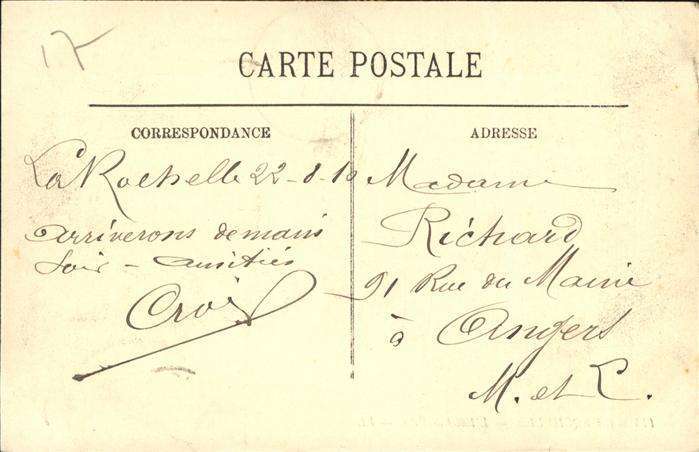 17
CARTE POSTALE
CORRESPONDANCE
La Rochelle 22-8-10
arriverons demain
soir - amitiés
ADRESSE
Madame
Richard
91 Rue du Maine
à Angers
M. et L.